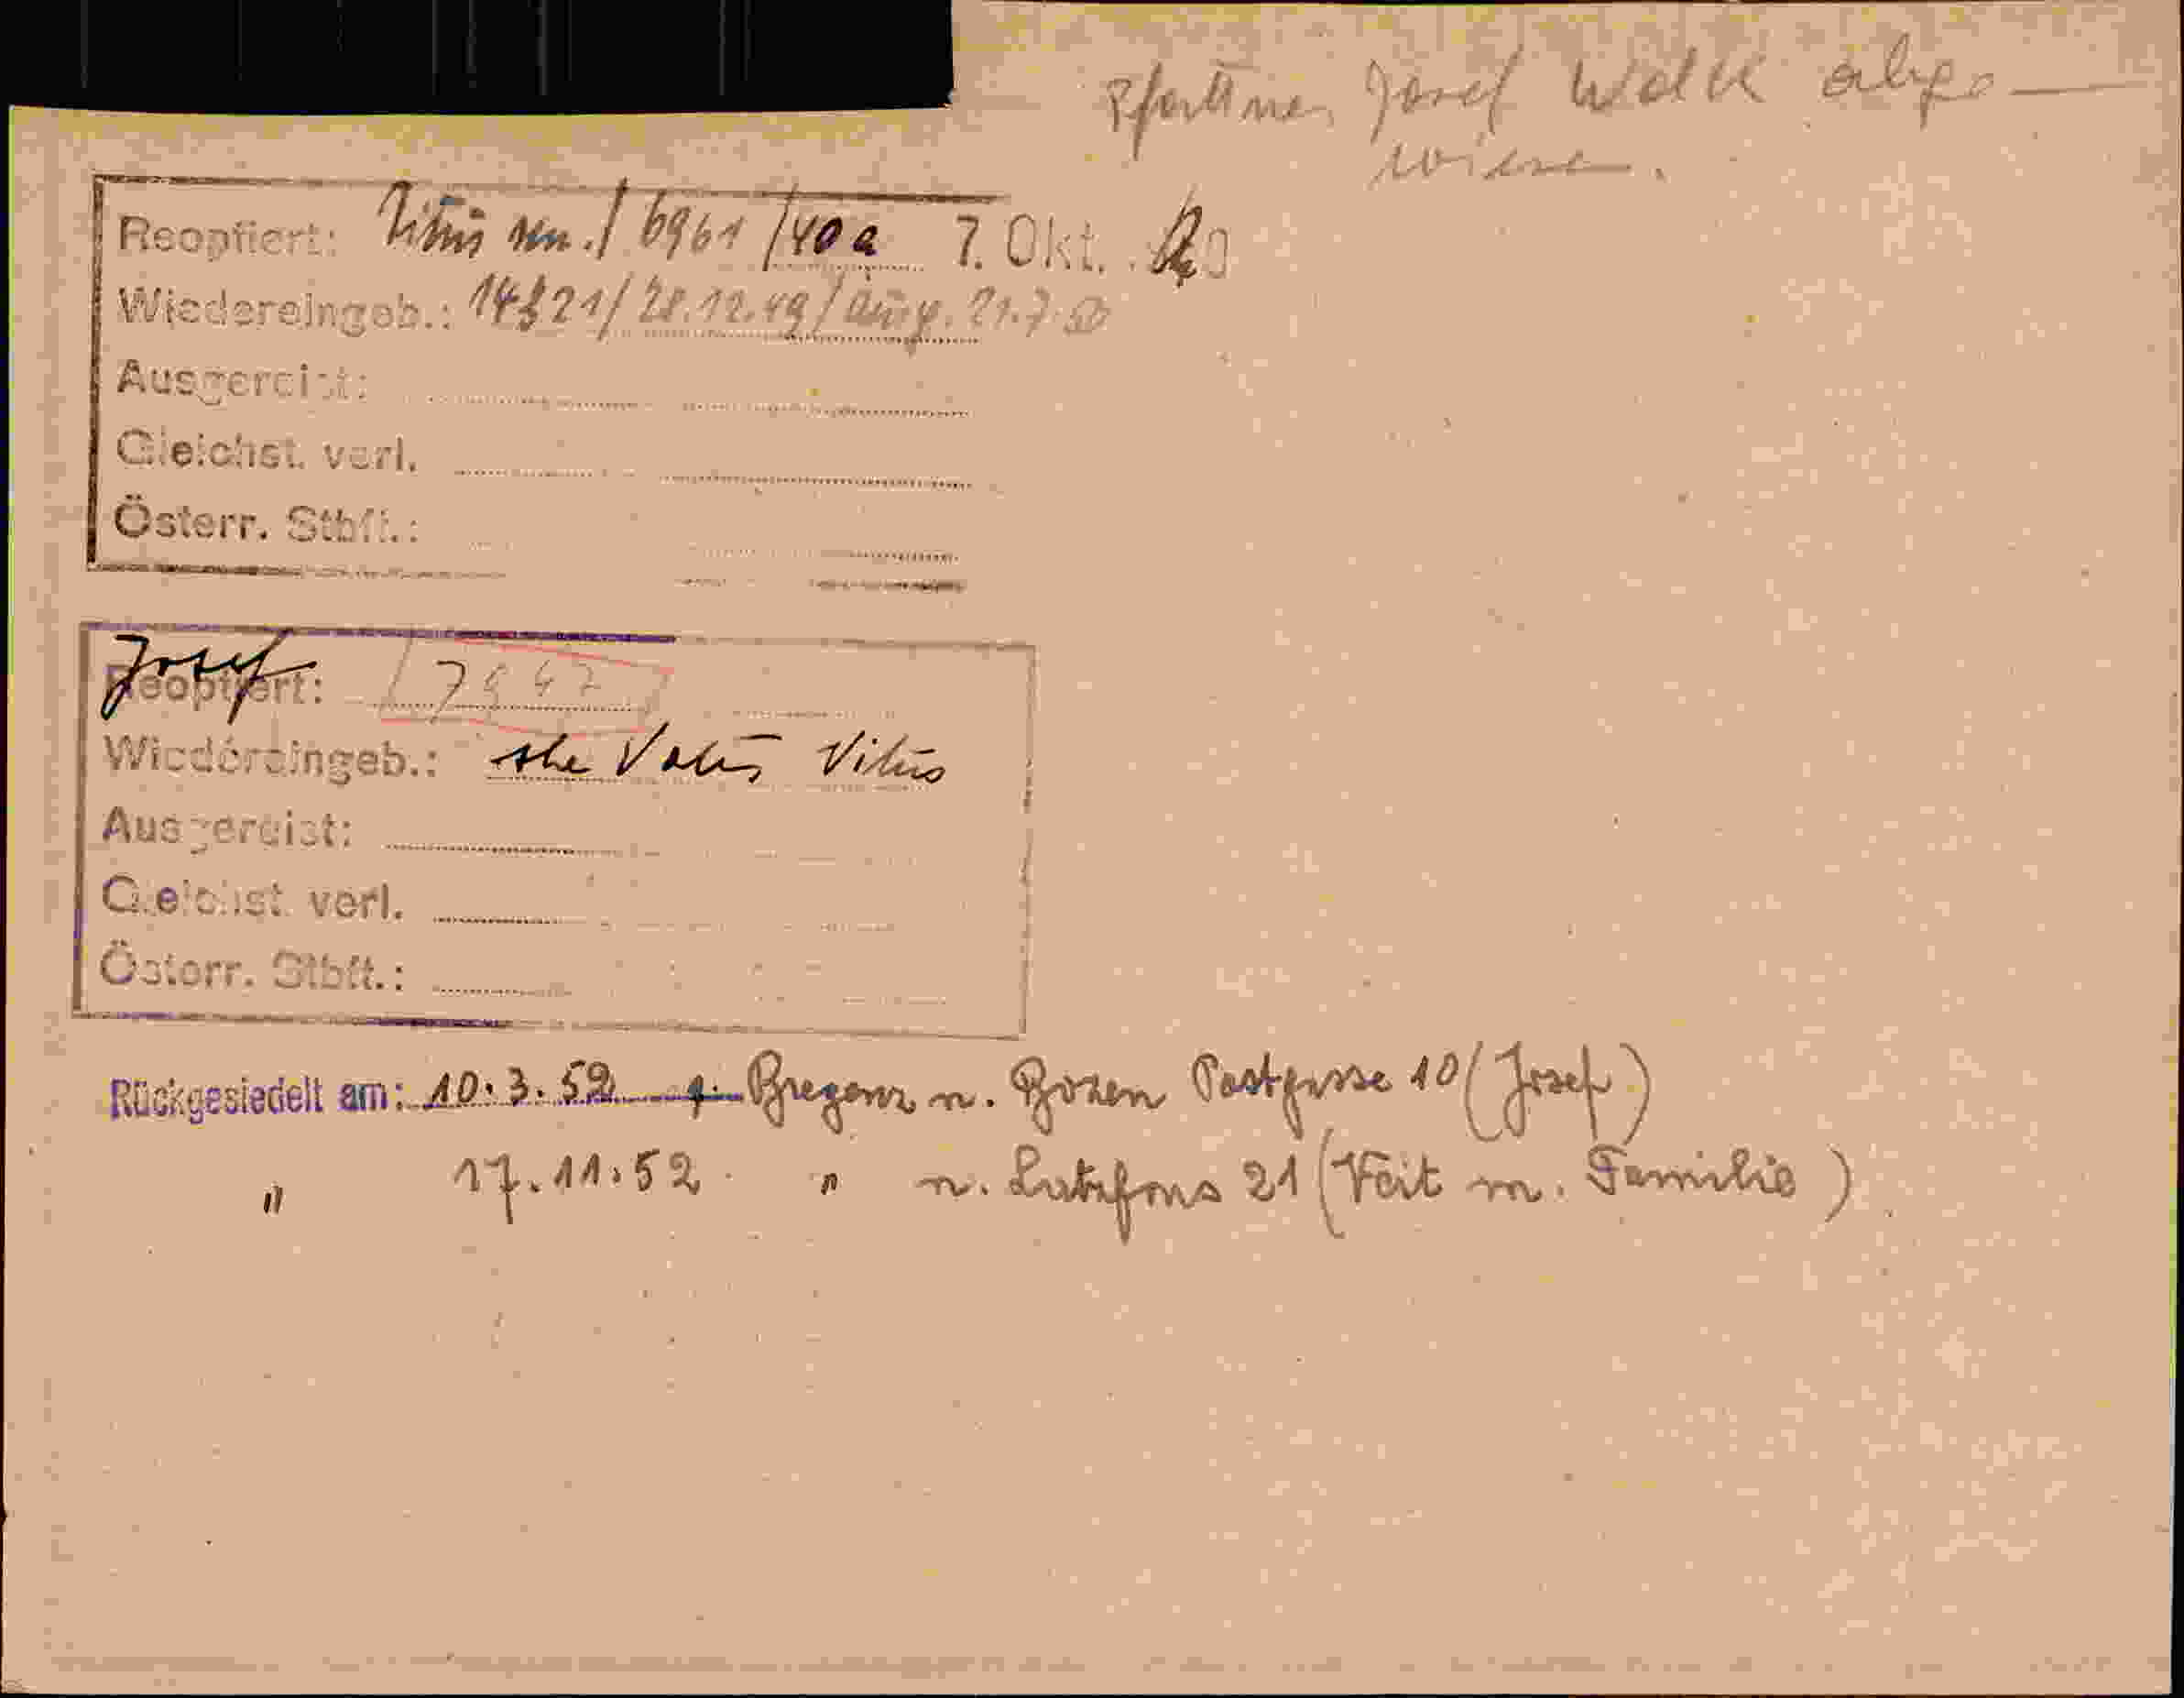 Josef Wolk abge-
wiesen.
Reoptiert: Vitus sen. / 6961 / 40a 7. Okt.
Wiedereingeb.: 14821 / 28.12.49 / 21.7.50
Ausgereist:
Gleichst. verl.
Österr. Stbft.:
Josef
Reoptiert: 7947
Wiedereingeb.: Vater Vitus
Ausgereist:
Gleichst. verl.
Österr. Stbft.:
Rückgesiedelt am: 10.3.52 Bregenz n. Bozen Postgasse 10 (Josef)
" 17.11.52 " n. Latzfons 21 (Veit m. Familie)